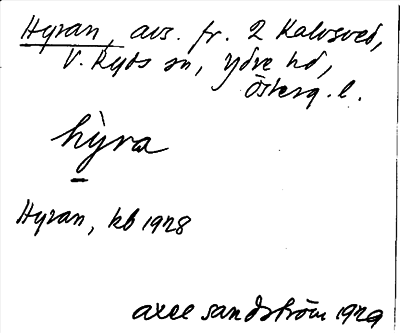 Hyran, avs. fr. 2 Kalvsved,
V. Ryds sn, Ydre hd,
Österg. l.
hy̔ra
Hyran, kb 1928
Axel Sandström 1929